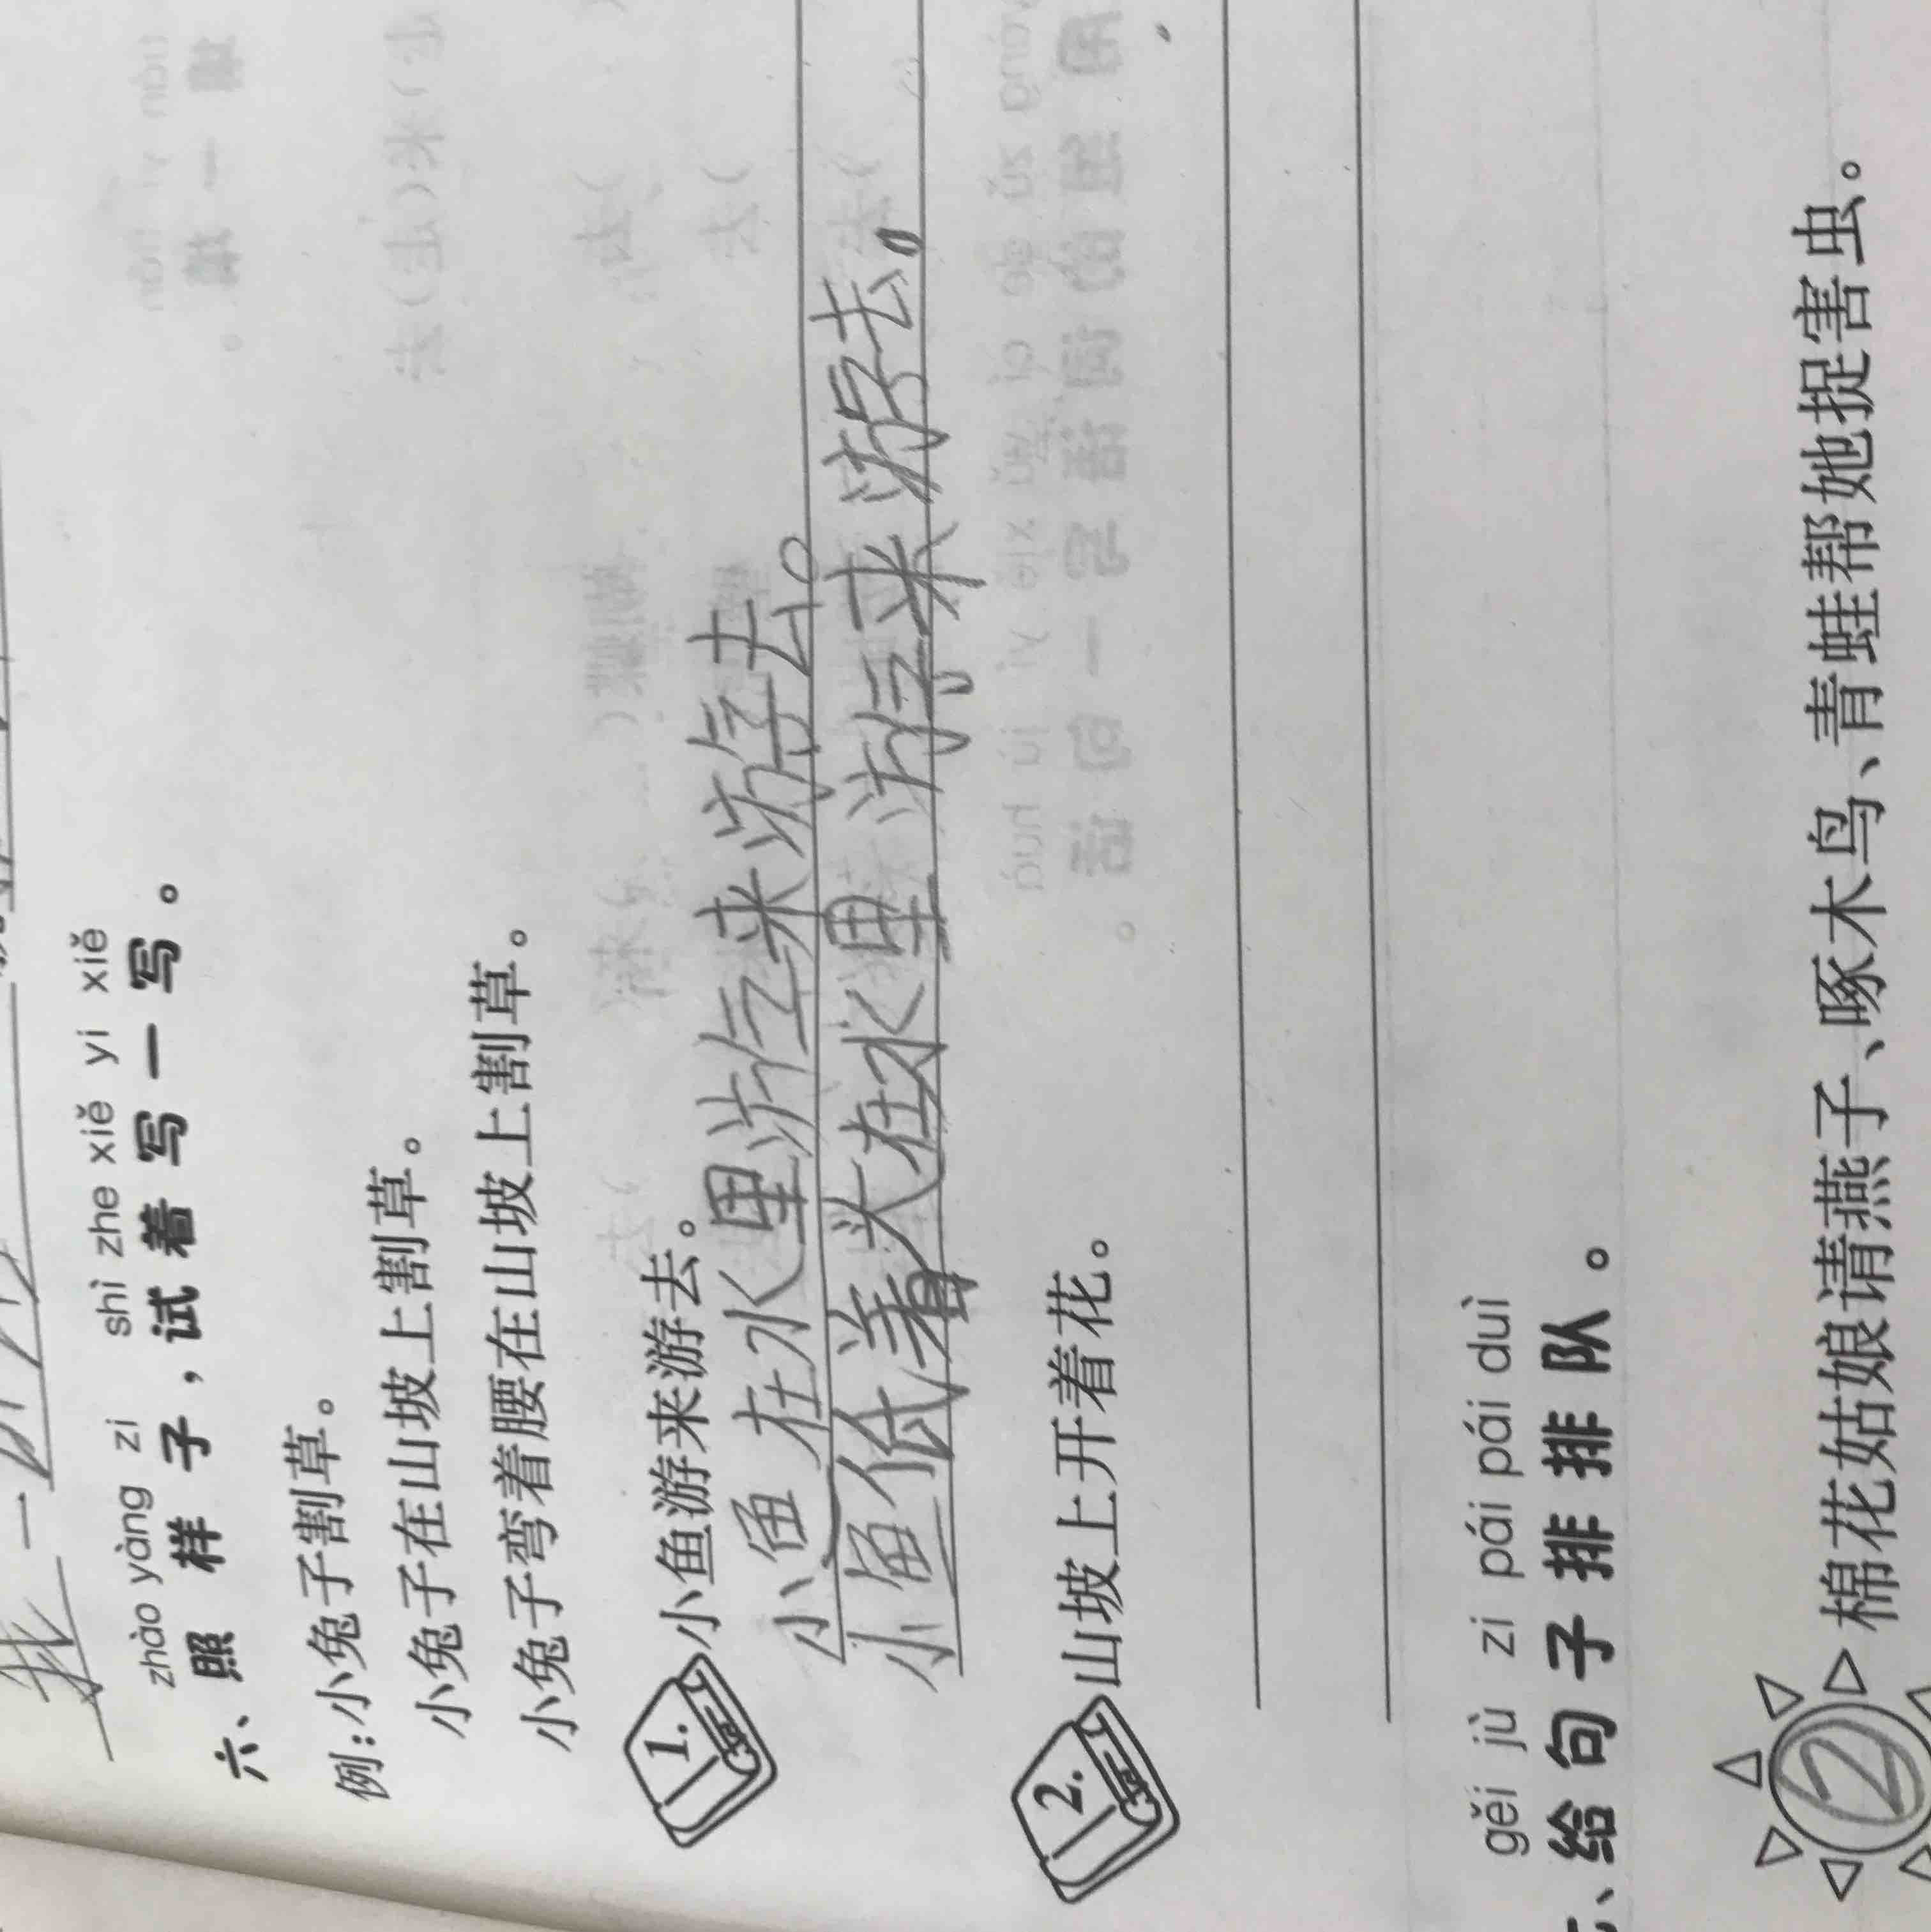 zhào yàng zi shì zhe xiě yi xiě
六、照样子，试着写一写。
例：小兔子割草。
小兔子在山坡上割草。
小兔子弯着腰在山坡上割草。
1. 小鱼游来游去。
小鱼在水里游来游去。
小鱼低着头在水里游来游去。
2. 山坡上开着花。
gěi jù zi pái pái duì
、给句子排排队。
② 棉花姑娘请燕子、啄木鸟、青蛙帮她捉害虫。